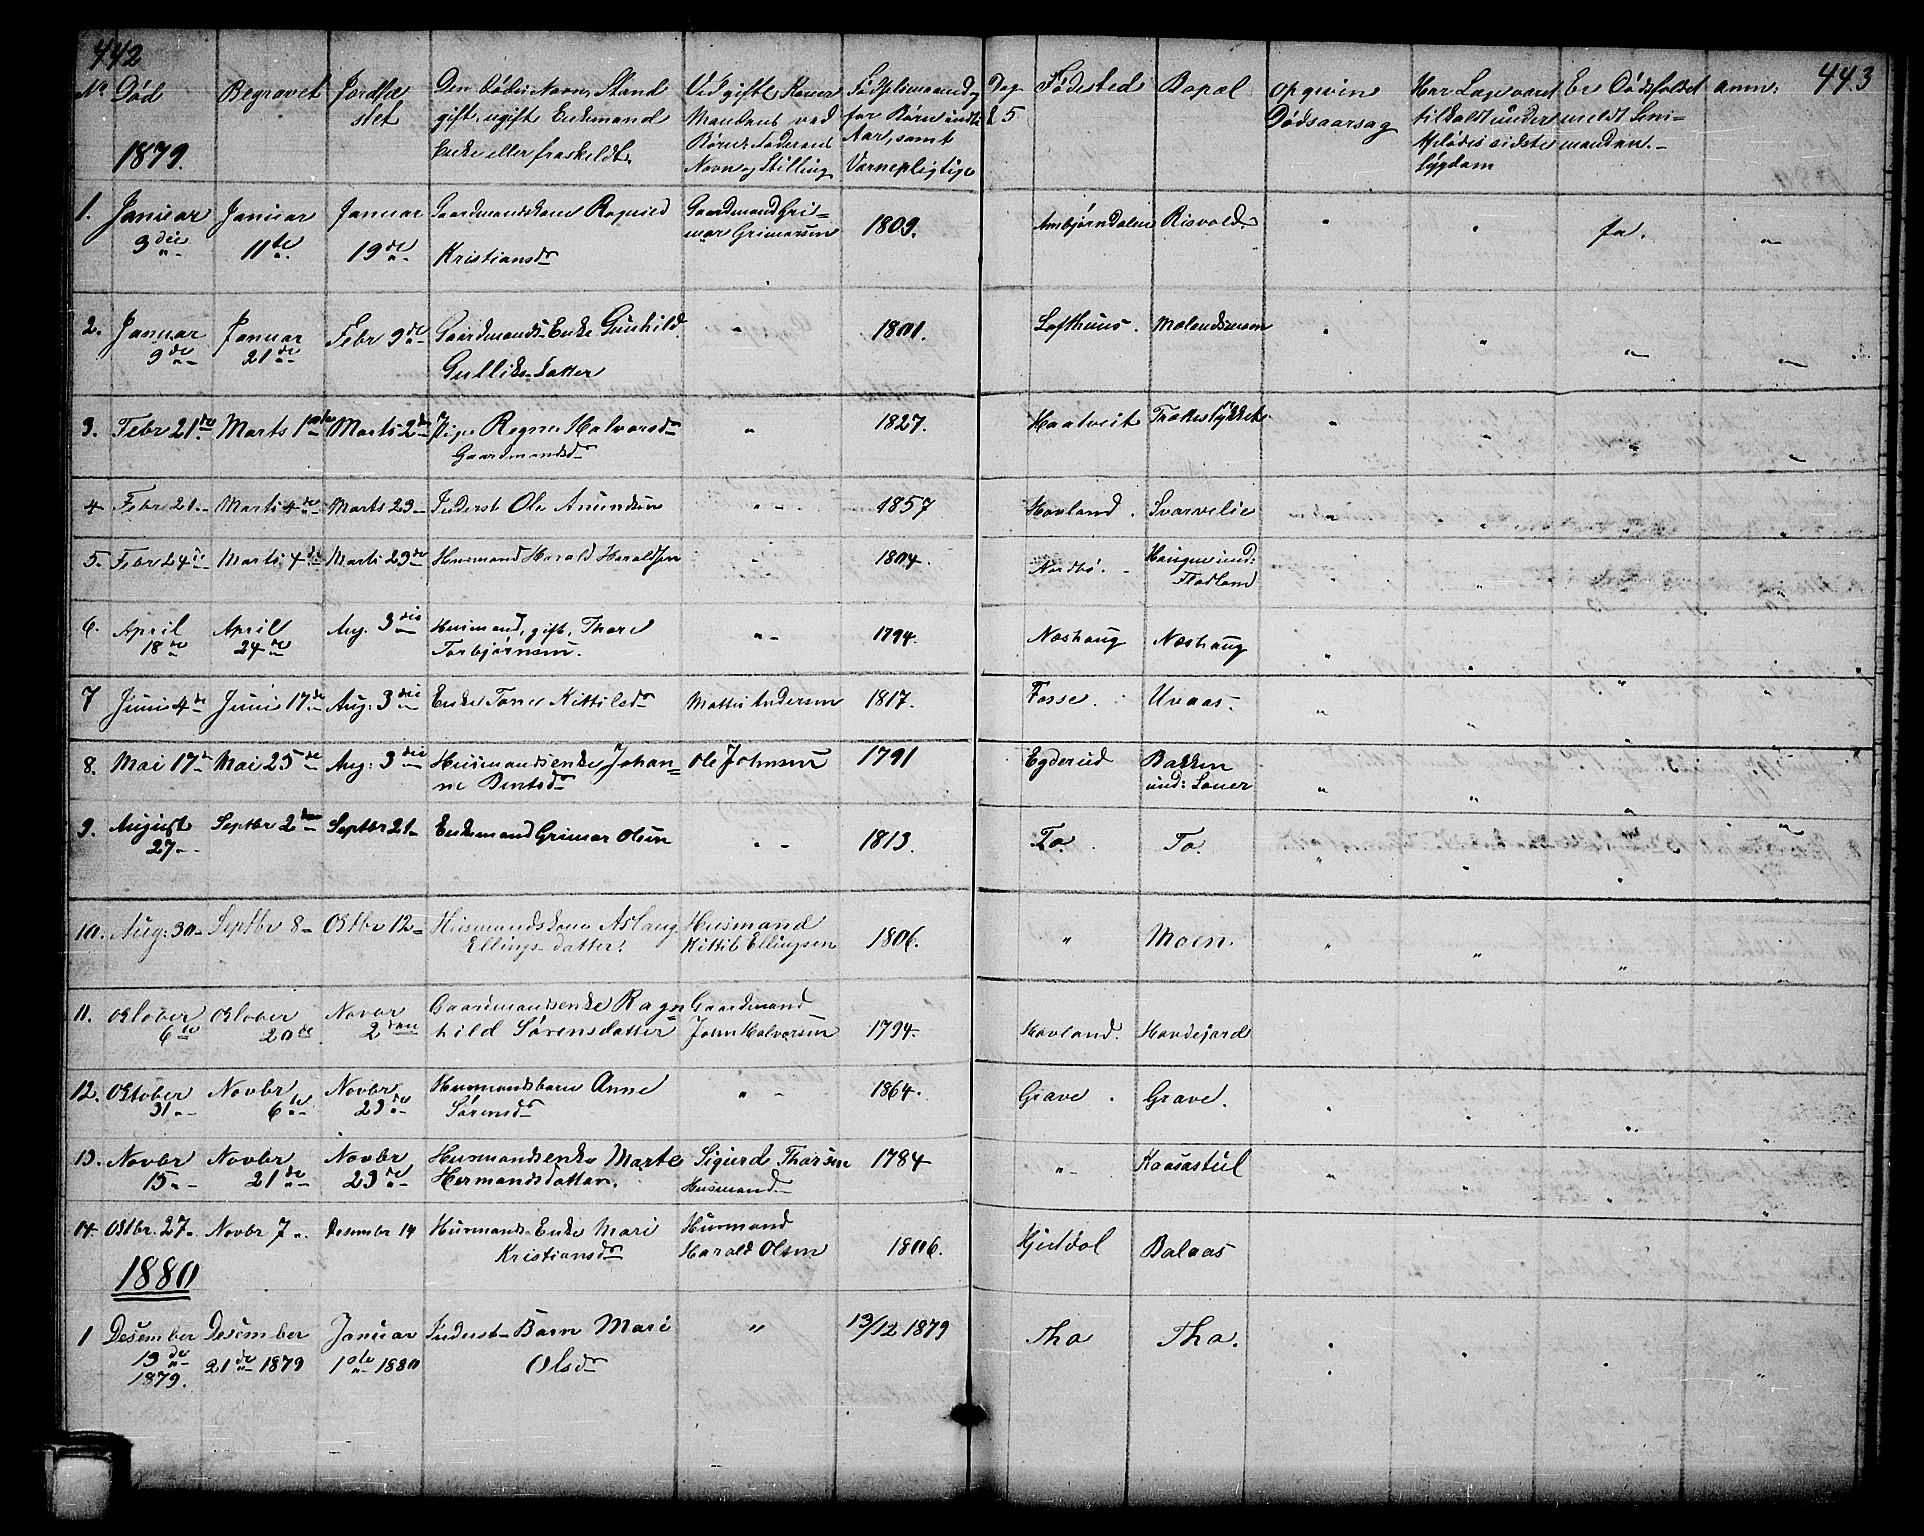 442
443
No Død Begravet Jordfæstet Den dødes Navn, Stand gift, ugift Enkemand Enke eller fraskeldt. Ved gifte Koner Mandens ved Børn: Faderens Navn og Stilling Fødselsmaaned for Børn indtil Aar, samt Værnepligtige Dag Fødested Bopæl opgiven Dødsaarsag Har Læge været tilkaldt under Afdødes sidste Sygdom Er Dødsfaldet meldt Leni-manden. anm:
1879.
1. Januar 3die Januar 11te Januar 19de Gaardmandskone Ragnild Kristiansdr Gaardmand Grimar Grimarsen 1809. Ambjørndalen Risvold. " " ja. "
2. Januar 9de Januar 21de Febr 9de Gaardmands-Enke Gunhild Gulliks-datter " 1801. Lofthuus. Molandsmoen " " " "
3. Febr 21de Marts 1ste Marts 2den Pige Ragne Halvorsdr Gaardmandsd " 1827. Haatveit Trækestykket " " " "
4 Febr 21 Marts 4de Marts 23 Inderst Ole Amundsen " 1857 Hovland. Svarvelie " " "
5. Febr 24de Marts 4de Marts 23de Husmand Harald Haraldsen " 1804. Nordbø. Haugen und: Flatland " " "
6. April 18de April 24de Aug. 3die Husmand, gift, Thore Torbjørnsen. " 1794. Næshaug Næshaug " " "
7 Juni 4de Juni 17de Aug: 3die Enke Tone Kittilsdr Mattis Andersen 1817. Fosse. Uvaas. " " " "
8. Mai 17de Mai 25de Aug: 3die Husmandsenke Johanne Bentsdr Ole Johnsen 1791 Egderud Bakken und: Souer " " " "
9. August 27 Septbr 2den Septbr 21 Enkemand Grimar Olsen " 1813. To. To. " " " "
10. Aug: 30 Septbr 8 Oktbr 12 Husmandskone Aslaug Ellings-datter. Husmand Kittil Ellingsen 1806. " Moen. " " " "
11. Oktober 6te Oktober 20de Novbr 2den Gaardmandsenke Ragnhild Sørensdatter Gaardmand John Halvorsen 1794. Hovland. Hovdejord
12. Oktober 31 Novbr 6te Novbr 23de Husmandsbarn Anne Sørensdr " 1864. Grave. Grave. " " " "
13. Novbr 15 Novbr 21de Novbr 23de Husmandsenke Marte Hermandsdatter. Sigurd Thorsen Husmand 1784 " Kaasastul " " " "
14. Oktbr. 27 Novbr 7 Desember 14 Husmands-Enke Mari Kristiansdr Husmand Harald Olsen 1806. Hjutdol Bolaas
1880
1 Desember 13de 1879. Desember 21de 1879 Januar 1ste 1880 Inderst-Barn Mari Olsdr " 13/12 1879 Tho Tho. " " " "